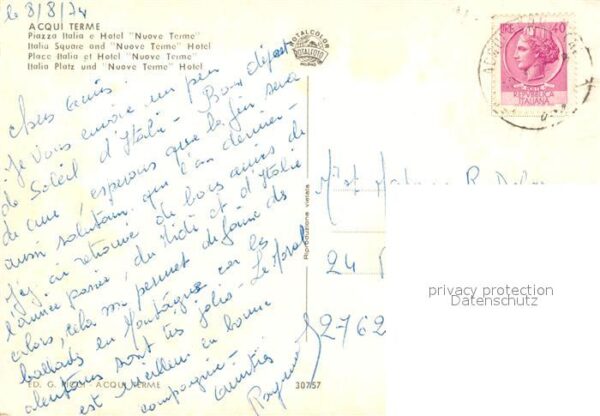 le 8/8/74
ACQUI TERME
Piazza Italia e Hotel "Nuove Terme"
Italia Square and "Nuove Terme" Hotel
Place Italia et Hotel "Nuove Terme"
Italia Platz und "Nuove Terme" Hotel
ROTALCOLOR
ROTALFOTO
MILANO
LIRE 40
POSTE
REPVBBLICA
ITALIANA
Chers Amis
Je vous envoie un peu
de Soleil d'Italie - Bon départ
de cure, espérons que la fin sera
aussi salutaire que l'an dernier -
J'ai retrouvé de bons amis de
l'année passée, du Midi et d'Italie
alors, cela me permet de faire des
ballades en Montagne car les
alentours sont très jolis - Le Moral
est meilleur en bonne
compagnie -
Amitiés
Raymond
Riproduzione vietata
Mr et Madame R.
24
2762
privacy protection
Datenschutz
ED. G. - ACQUI TERME
30757